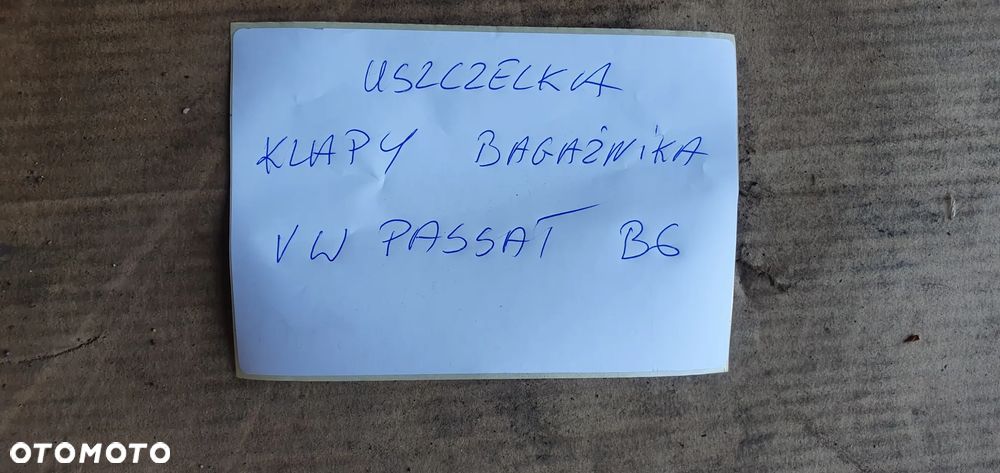 USZCZELKA
KLAPY BAGAŻNIKA
VW PASSAT B6
OTOMOTO